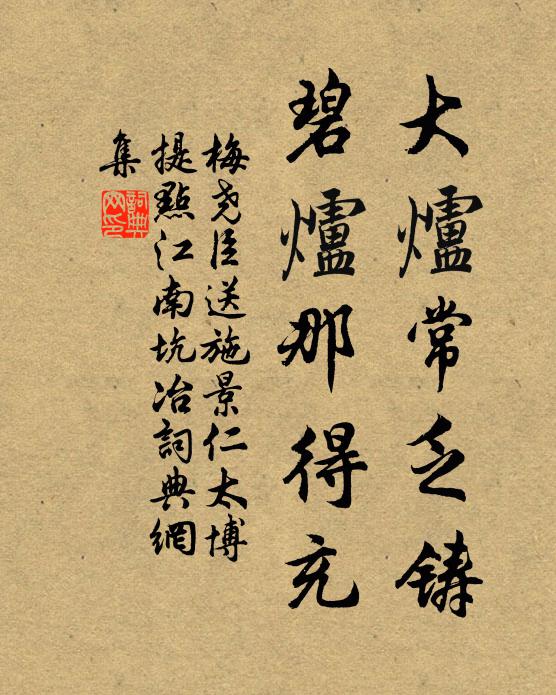 大爐常乏鋳
碧爐那得充
梅尭臣送施景仁太博
提點江南坑冶詞典網
集
詞典
网印